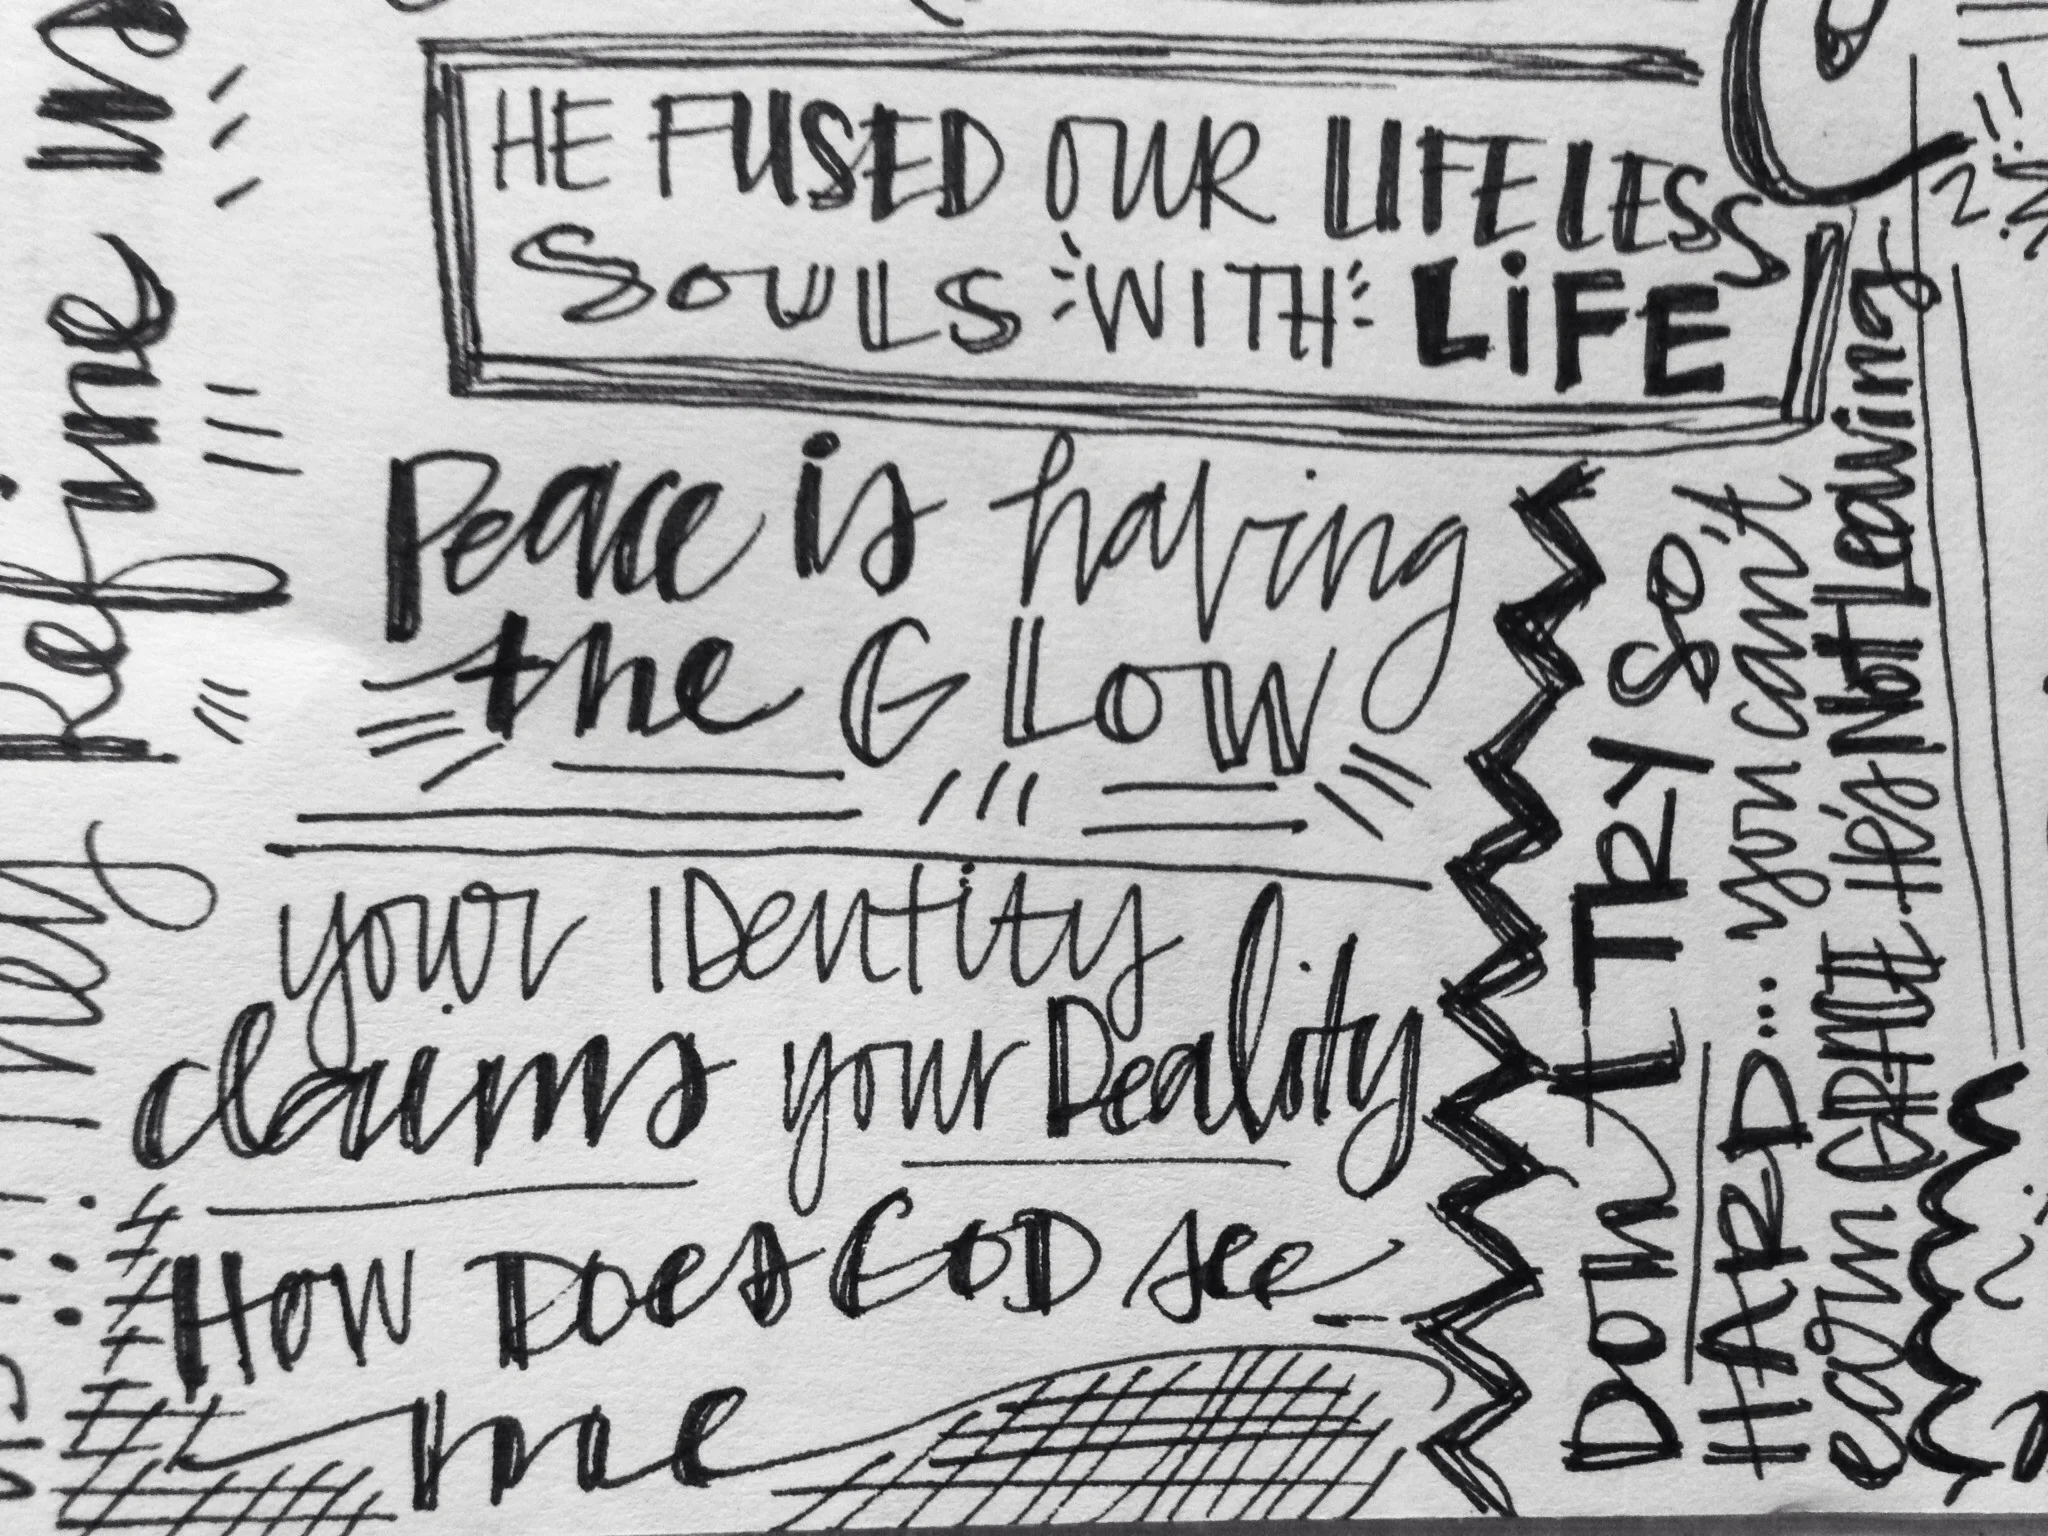 HE FUSED OUR LIFELESS
SOULS WITH LiFE
Peace is having
the GLOW
your IDentity
claims your Reality
How Does GOD see
me
Don't TRY SO
HARD... you can't
earn GRACE. He's Not Leaving
Refine